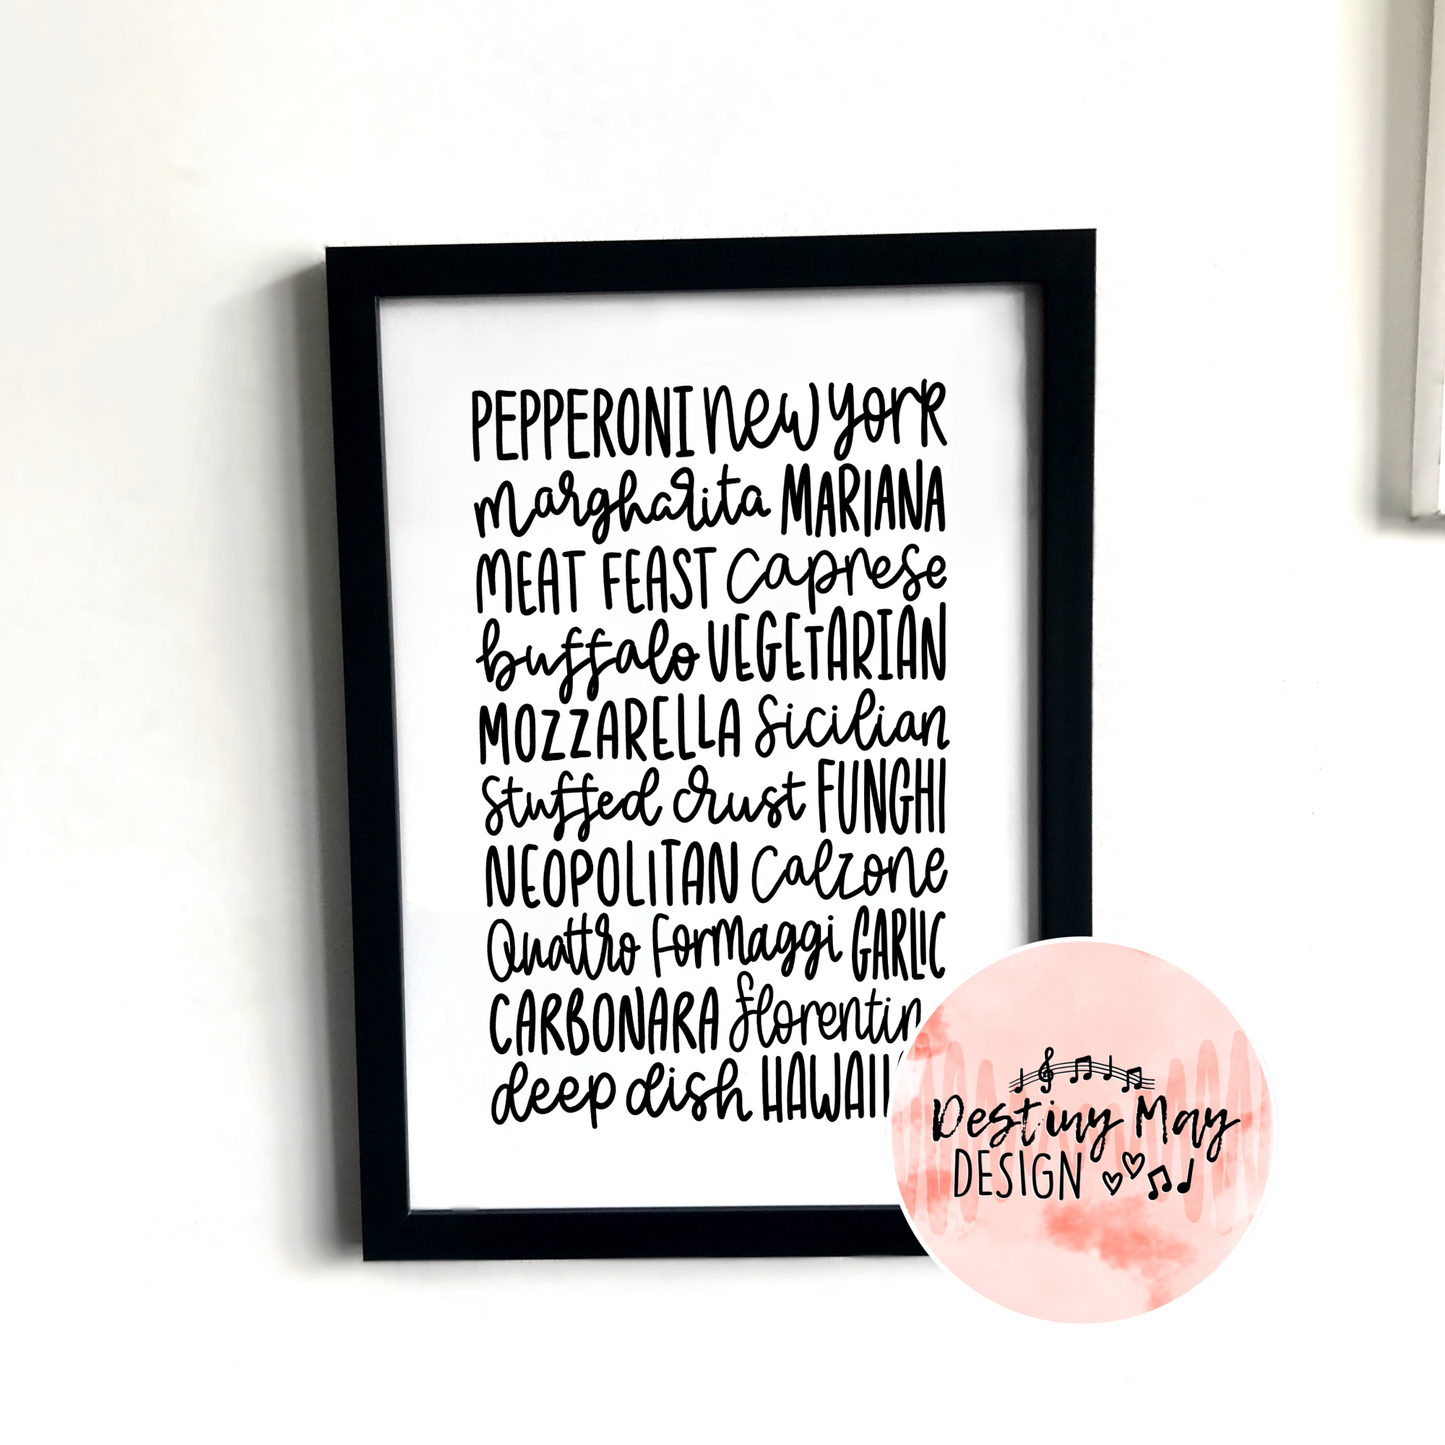 PEPPERONI new york
margharita MARIANA
MEAT FEAST caprese
buffalo VEGETARIAN
MOZZARELLA Sicilian
Stuffed crust FUNGHI
NEOPOLITAN Calzone
Quattro Formaggi GARLIC
CARBONARA
deep dish
Destiny May
DESIGN